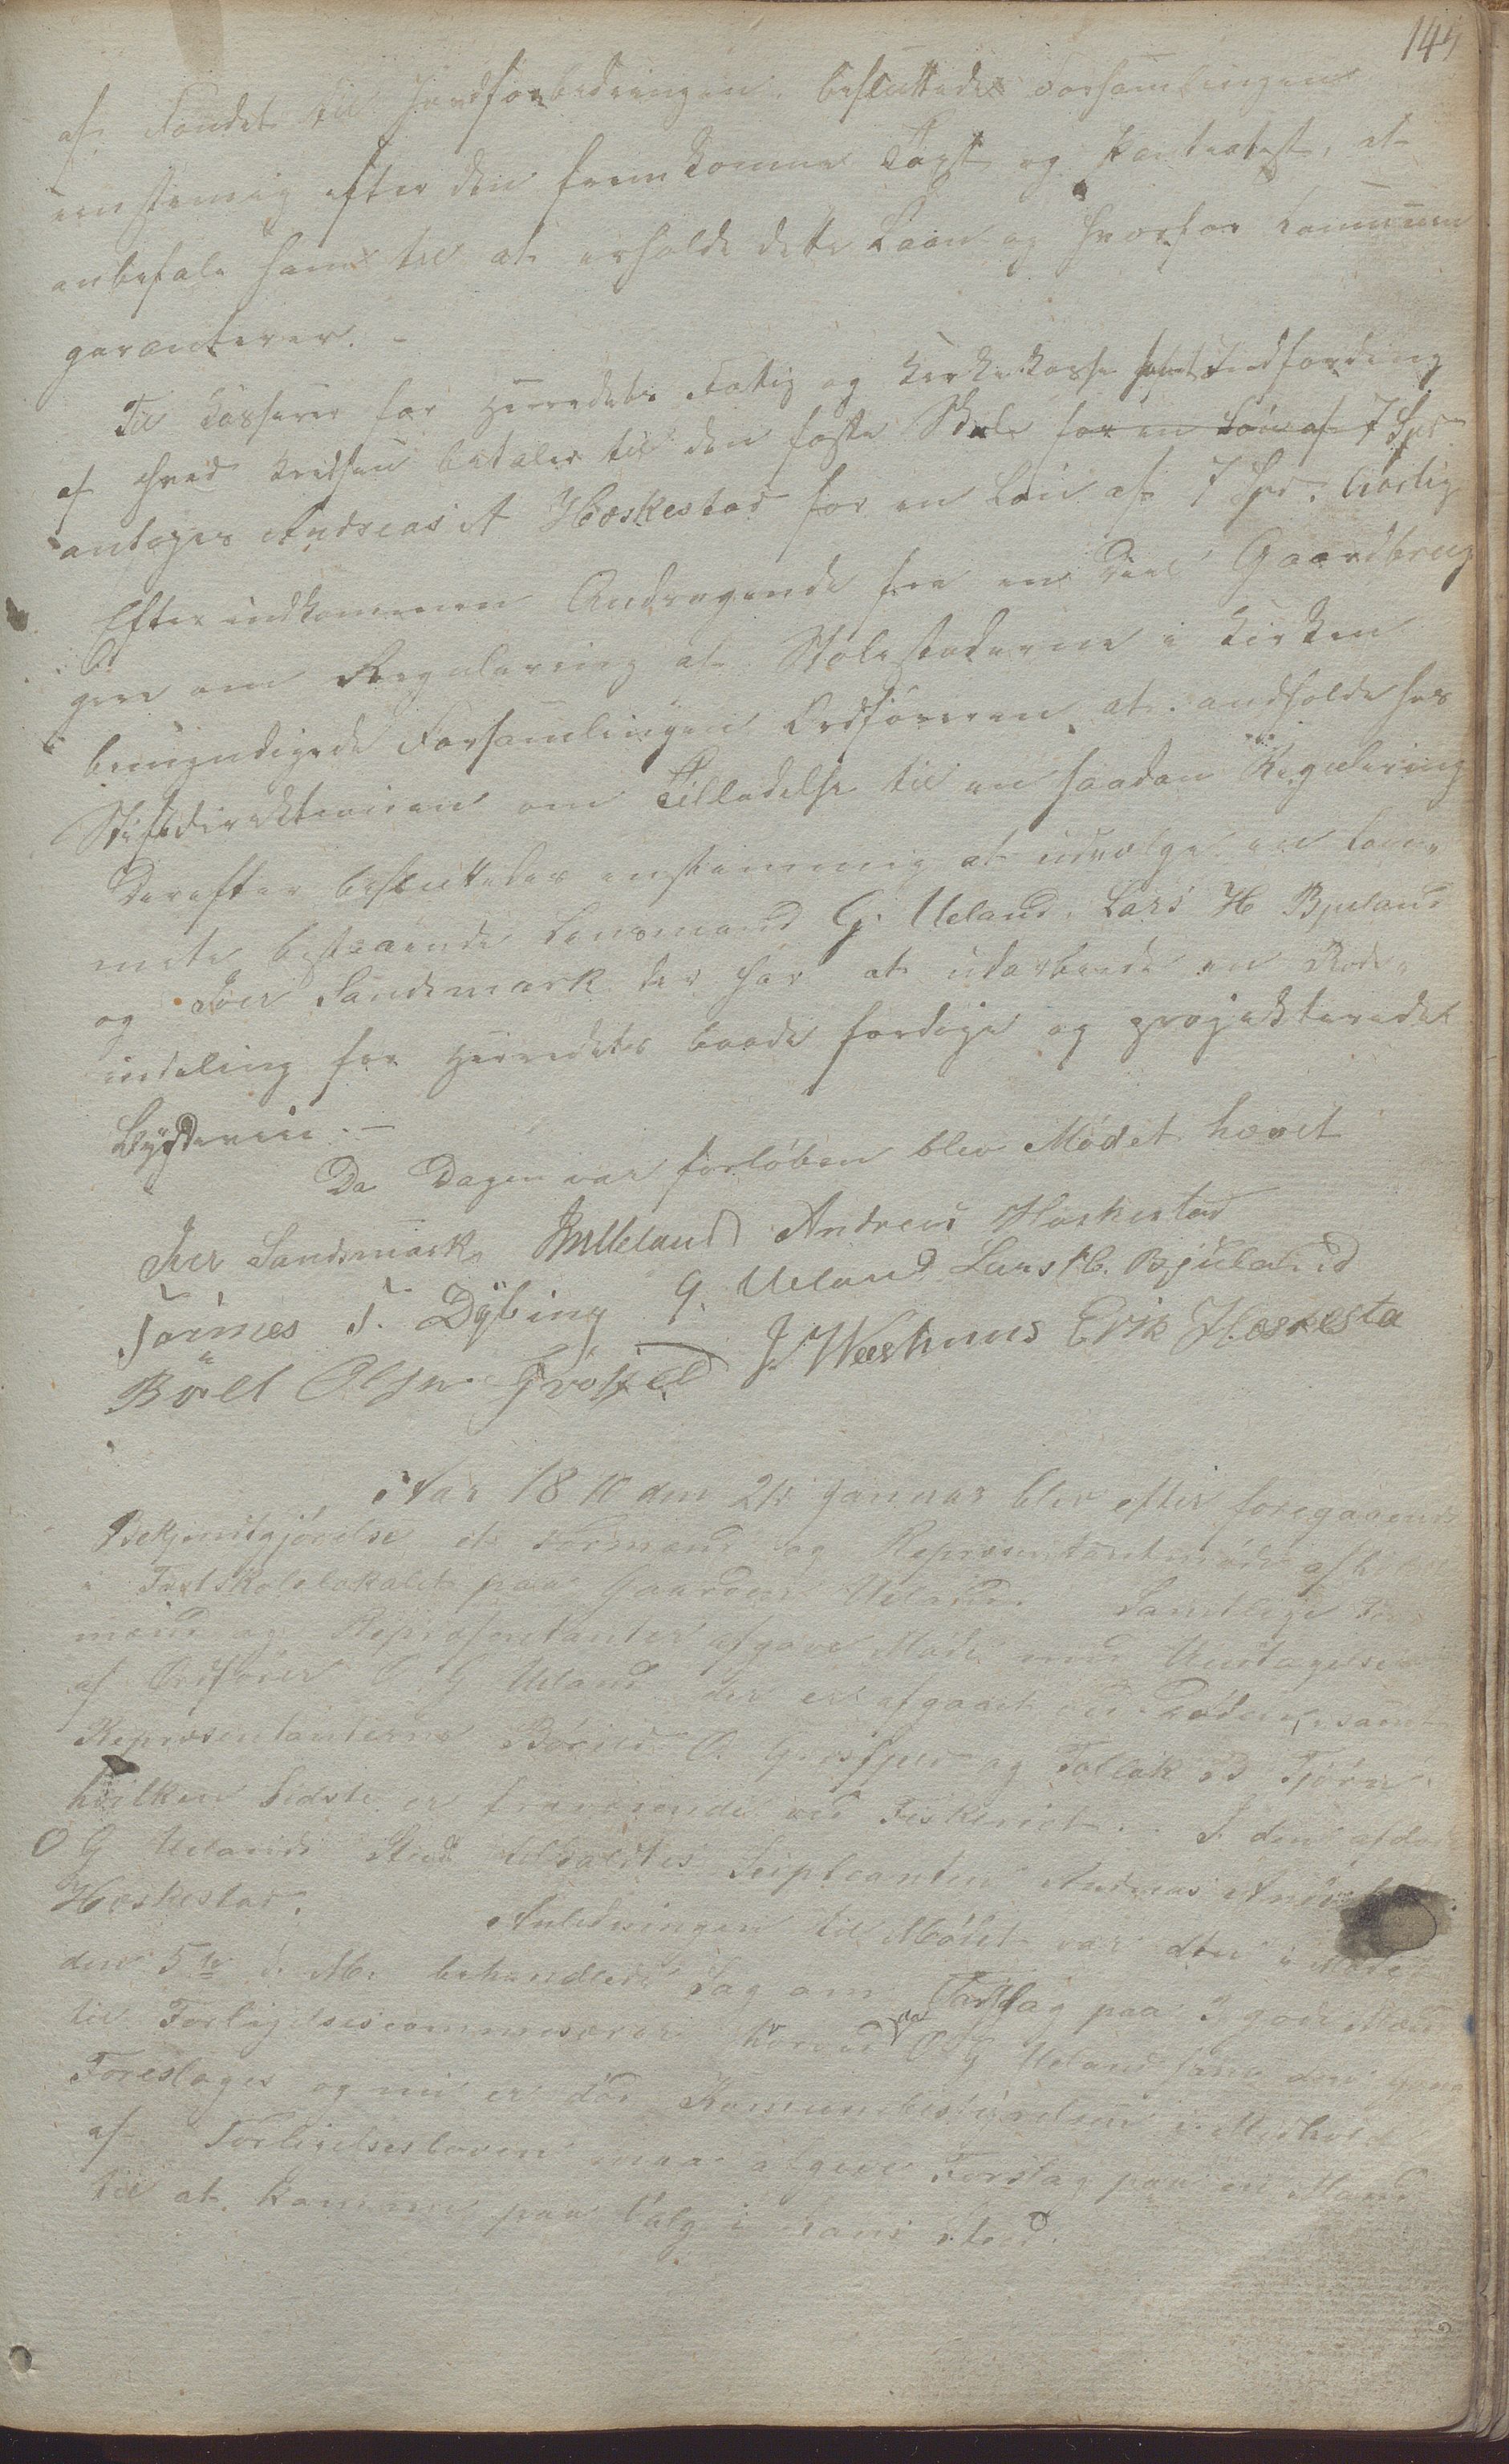 145
af Fondet til Jordforbedringen, besluttedes Forsamlingen
eenstemig efter den fremkomne Taxt og Panteatest, at
anbefale ham til at erholde dette Laan og hvorfor Communen
garanterer. -
Til Casserer for Herredets Fattig og Kirkekasse samt Indfordring
af hvad Kredsen betaler til den faste Skole for en Løn af 7 Spd
antages Andreas A Hæskestad for en Løn af 7 Spd. aarlig
Efter indkommen Andragende fra en Deel Gaardbrug
gere om Regulering at Stolestaderne i Kirken
bemyndigede Forsamlingen Ordføreren at andholde hos
Stiftdirektionen om Tilladelse til en saadan Regulering
Derefter besluttedes enstemmig at udvælge en Com-
mete bestaaende Lensmand G. Ueland, Lars H Bjuland
og Iver Sandsmark der har at udarbeide en Rode-
indeling for Herredets baade færdige og projekterede
Bygdeveie. -
Da Dagen var forløben blev Mødet hævet
Iver Sandsmark Andreas Hæskestad
Tønnes T. Dybing G. Ueland Lars H. Bjuland
Børeld Olsen J. Veshuus Erik Hæskesta
Aar 18 den Januar blev efter foregaaende
Bekjentgjørelse et Formænd og Repræsentantmøde afholdt
i Fastskolelokalet paa Gaarden Ueland. Samtlige For-
mænd og Repræsentanter afgave Møde med Undtagelse
af Ordfører O. G Ueland der er afgaaet ved Døden, samt
Repræsentanterne O. og Tollak B Tjørn
hvilken Sidste er fraværende ved Fiskeriet. - I den afdøde
O G Uelands Sted tilkaldtes Supleanten Andreas
Hæskestad.
Anledningen til Mødet var den i Møde
den 5te d. M. behandlede Sag om Forslag paa 3 gode Mænd
til Forligelsescommissærer hvorved O G Ueland som den
Foreslages og nu er død Komunebestyrelsen i Medhold
af Forligelsesloven maa afgive Forslag paa en Mand
til at komme paa Valg i hans sted.